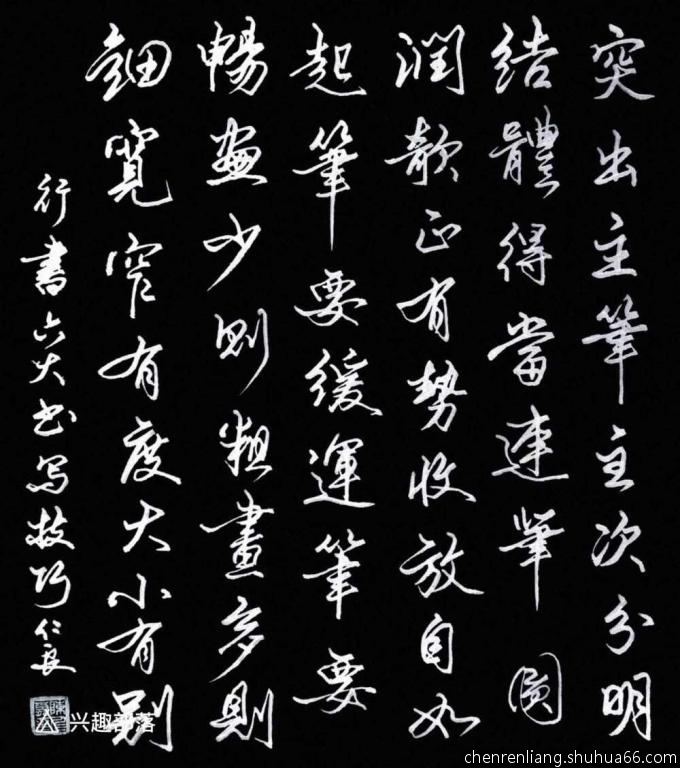 突出主筆主次分明
結體得當連筆圓
潤欹正有勢收放自如
起筆要緩運筆要
暢畫少則粗畫多則
細寬窄有度大小有别
行書六大书写技巧仁良
兴趣部落
chenrenliang.shuhua66.com